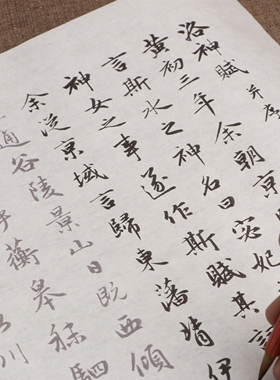 洛神賦并序
黄初三年余朝京
言斯水之神名曰宓妃
神女之事遂作斯賦其
余從京域言歸東藩伊
通谷陵景山日既西傾
乎蘅皋秣駟
川